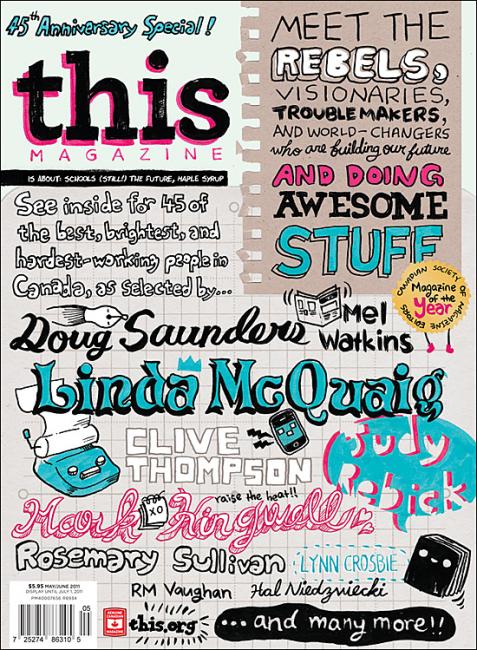 45th Anniversary Special!
this
MAGAZINE
IS ABOUT: SCHOOLS (STILL!) THE FUTURE, MAPLE SYRUP
MEET THE
REBELS,
VISIONARIES,
TROUBLEMAKERS,
AND WORLD-CHANGERS
who are building our future
AND DOING
AWESOME
STUFF
See inside for 45 of
the best, brightest, and
hardest-working people in
Canada, as selected by...
CANADIAN SOCIETY OF MAGAZINE EDITORS
Magazine
of the
Year
Doug Saunders
Mel
Watkins
Linda McQuaig
CLIVE
THOMPSON
Judy
Rebick
raise the heat!!
Mark Kingwell
XO
Rosemary Sullivan
LYNN CROSBIE
RM Vaughan
Hal Niedzviecki
$5.95 MAY/JUNE 2011
DISPLAY UNTIL JULY 1, 2011
05
7 25274 86310 5
GENUINE
CANADIAN
MAGAZINE
this.org
... and many more!!